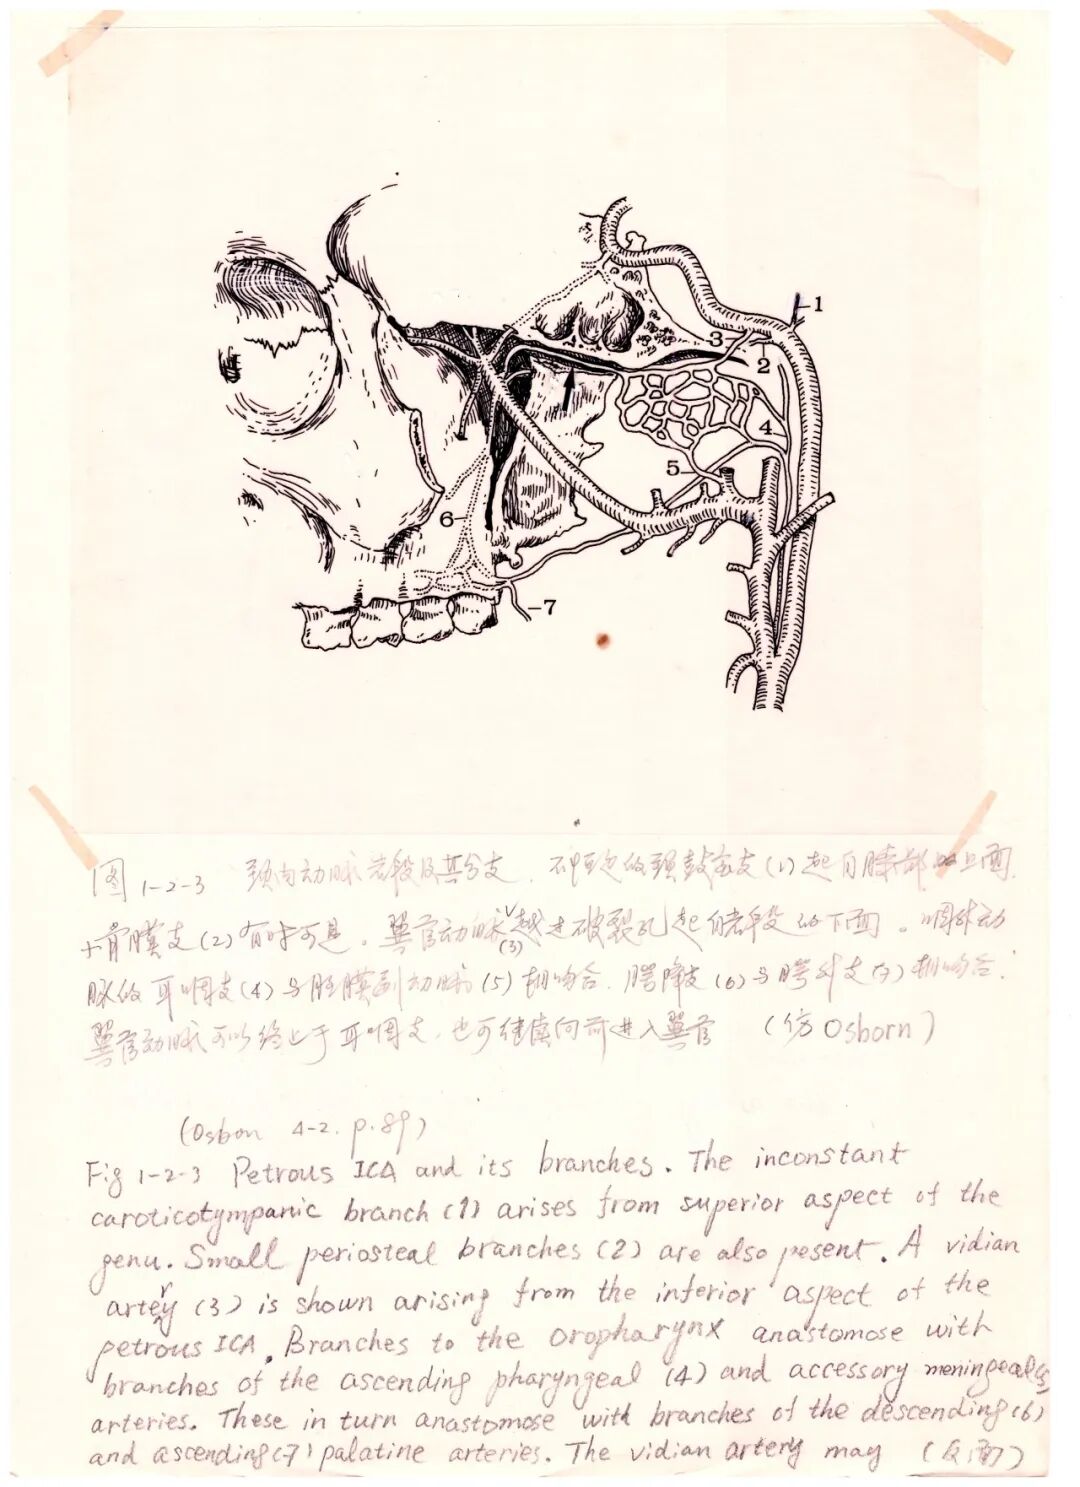 1
3
2
4
5
6
7
图 1-2-3 颈内动脉岩段及其分支. 不恒定的颈鼓室支(1)起自膝部的上面.
小骨膜支(2)有时可见. 翼管动脉(3)越过破裂孔起自岩段的下面. 咽升动
脉的耳咽支(4)与脑膜副动脉(5)相吻合. 腭降支(6)与腭升支(7)相吻合.
翼管动脉可以终止于耳咽支, 也可继续向前进入翼管 (仿 Osborn)
(Osbon 4-2. p.89)
Fig 1-2-3 Petrous ICA and its branches. The inconstant
caroticotympanic branch (1) arises from superior aspect of the
genu. Small periosteal branches (2) are also pesent. A vidian
artery (3) is shown arising from the inferior aspect of the
petrous ICA. Branches to the oropharynx anastomose with
branches of the ascending pharyngeal (4) and accessory meningeal (5)
arteries. These in turn anastomose with branches of the descending (6)
and ascending (7) palatine arteries. The vidian artery may (反面)